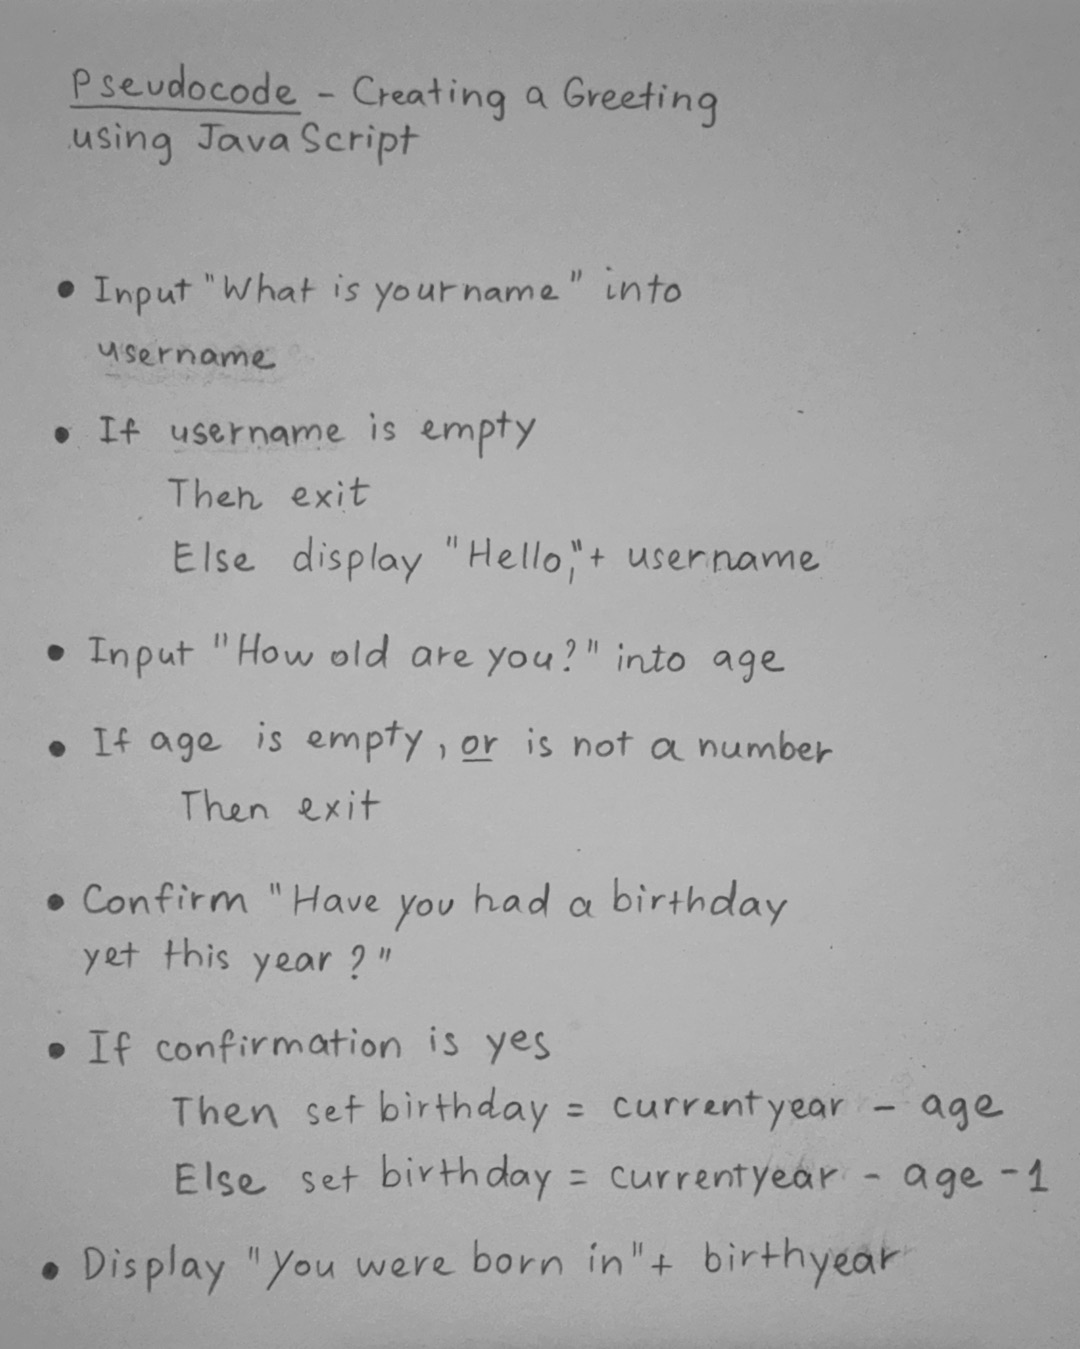 Pseudocode - Creating a Greeting
using JavaScript
• Input "What is your name" into
username
• If username is empty
Then exit
Else display "Hello," + username
• Input "How old are you?" into age
• If age is empty, or is not a number
Then exit
• Confirm "Have you had a birthday
yet this year?"
• If confirmation is yes
Then set birthday = currentyear - age
Else set birthday = currentyear - age -1
• Display "You were born in" + birthyear